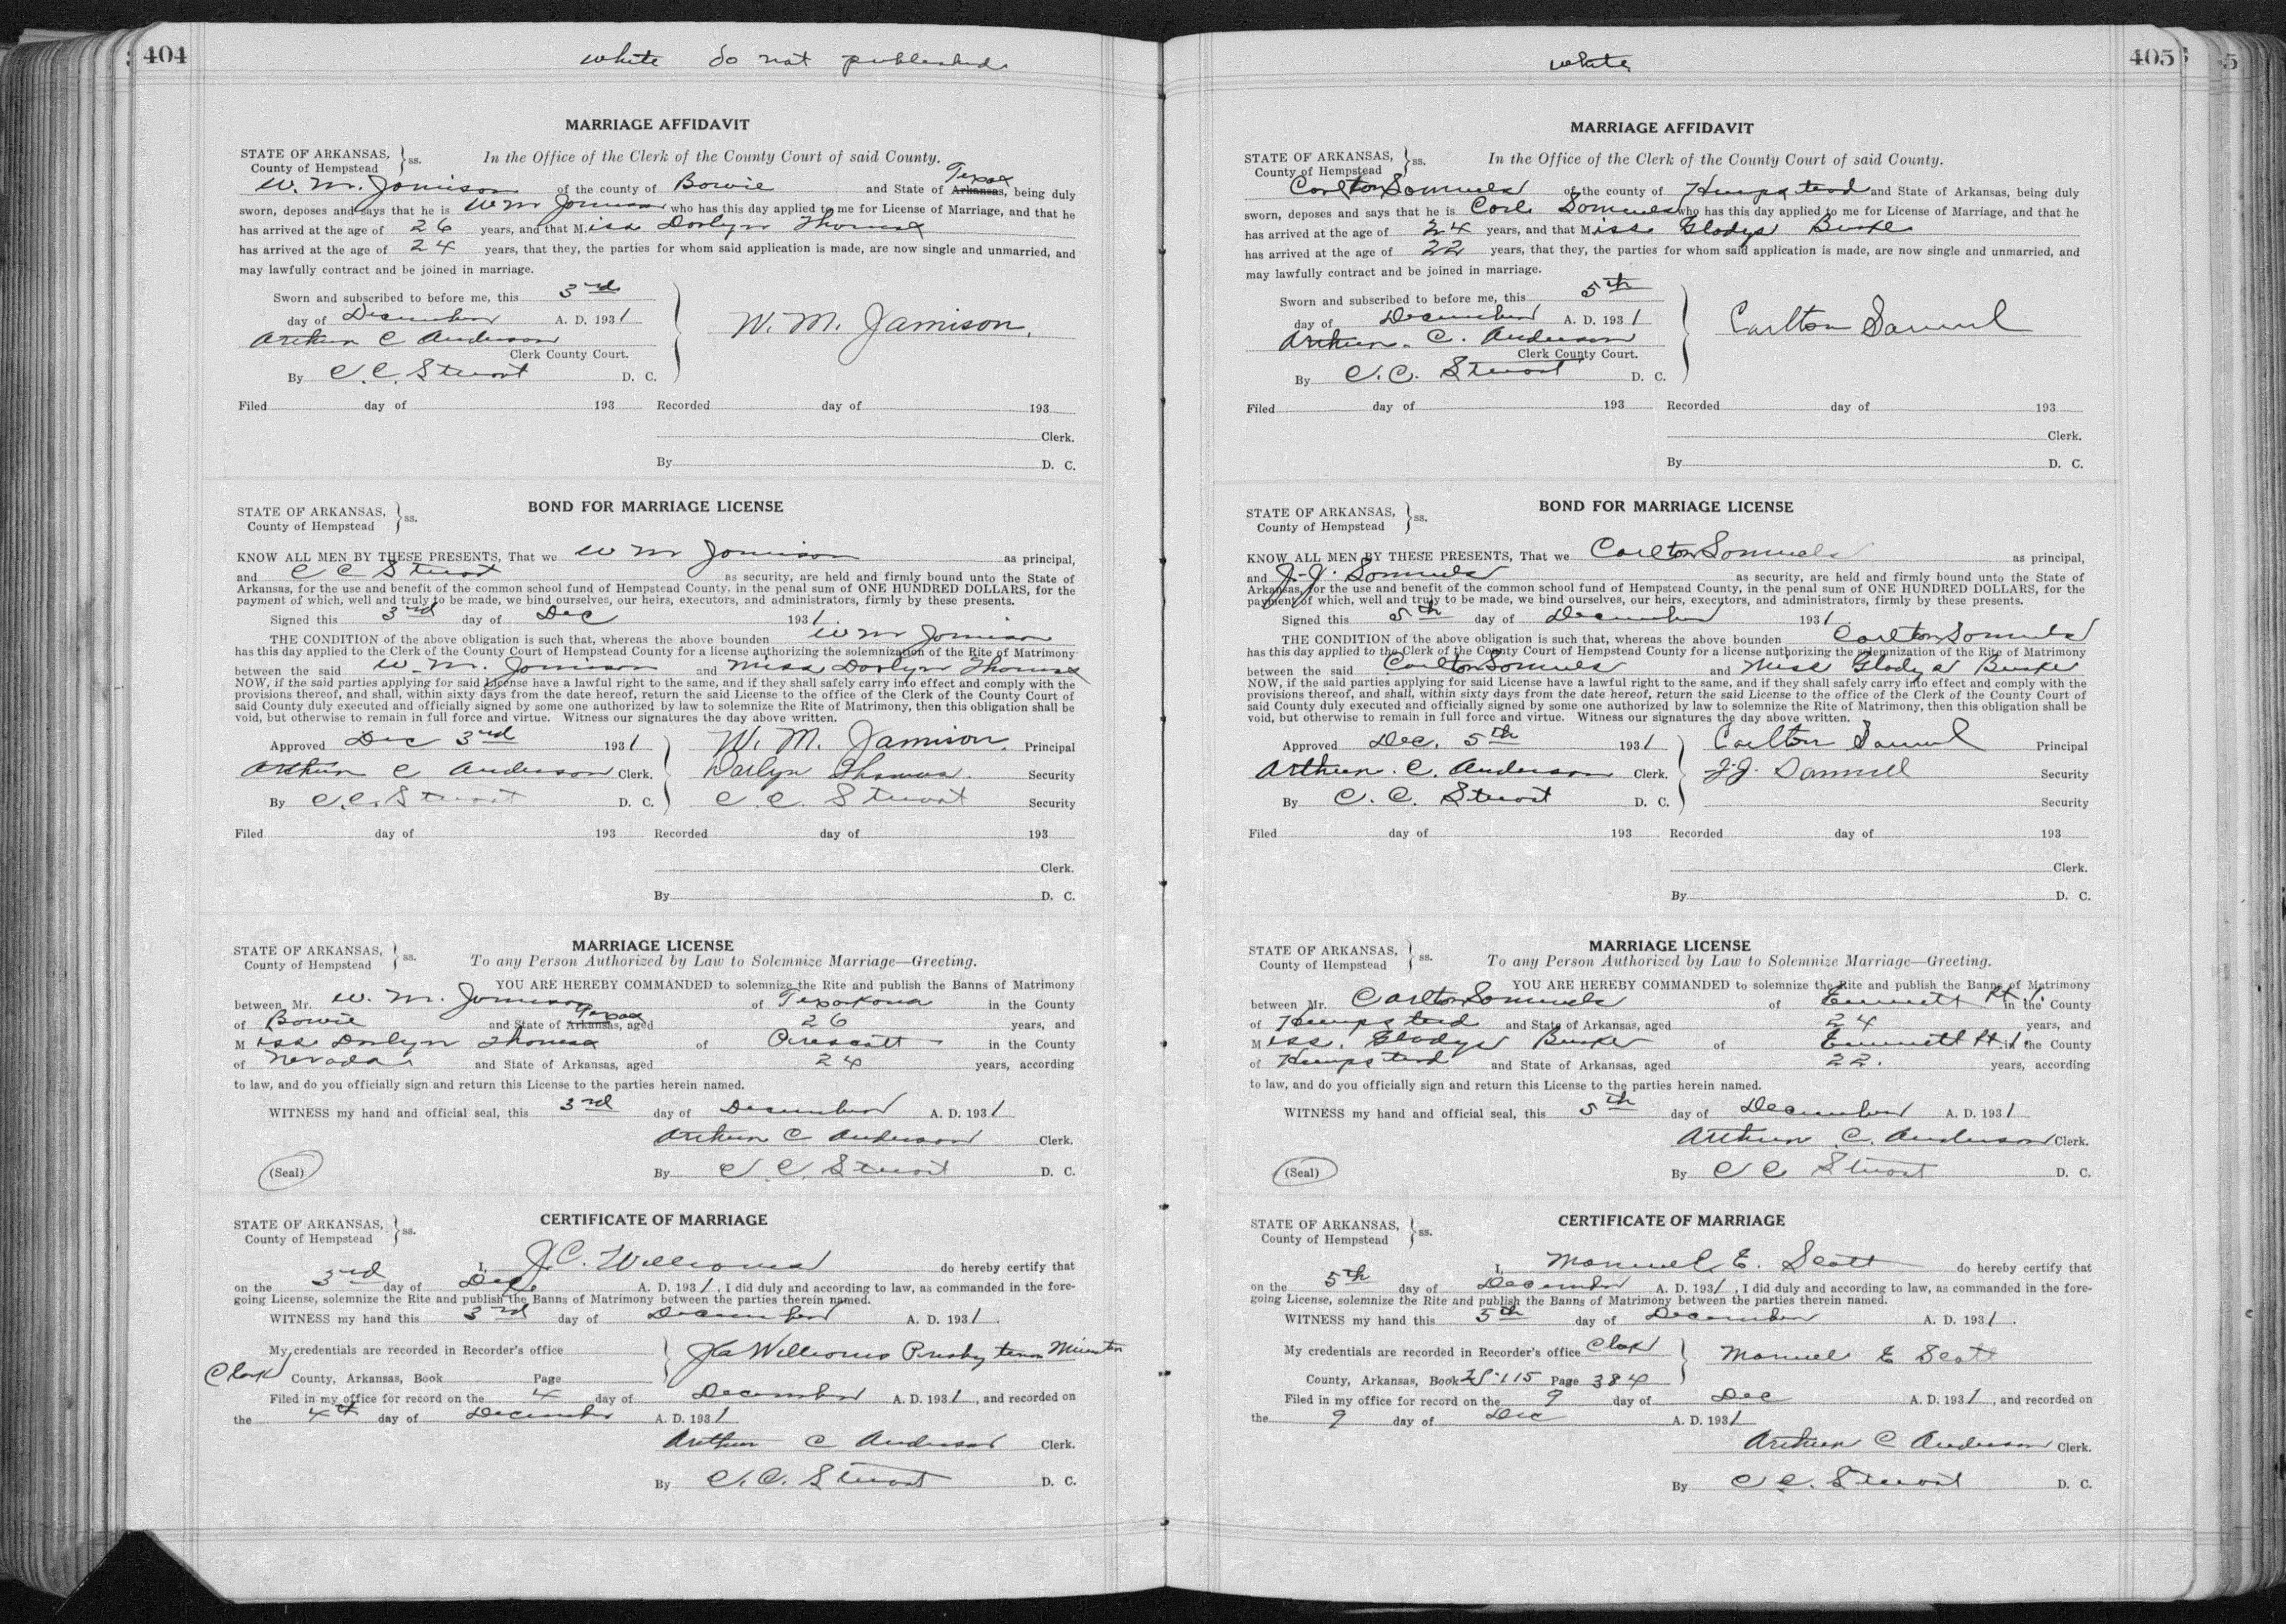 404
white do not published
MARRIAGE AFFIDAVIT
STATE OF ARKANSAS, } ss.
County of Hempstead
In the Office of the Clerk of the County Court of said County.
W. M. Jamison of the county of Bowie and State of Arkansas Texas, being duly
sworn, deposes and says that he is W M Jamison who has this day applied to me for License of Marriage, and that he
has arrived at the age of 26 years, and that Miss Darlyn Thomas
has arrived at the age of 24 years, that they, the parties for whom said application is made, are now single and unmarried, and
may lawfully contract and be joined in marriage.
Sworn and subscribed to before me, this 3rd
day of December A. D. 1931
Arthur C Anderson
Clerk County Court.
By C. C. Stuart D. C.
W. M. Jamison.
Filed day of 193 Recorded day of 193
Clerk.
By D. C.
BOND FOR MARRIAGE LICENSE
STATE OF ARKANSAS, } ss.
County of Hempstead
KNOW ALL MEN BY THESE PRESENTS, That we W M Jamison as principal,
and C C Stuart as security, are held and firmly bound unto the State of
Arkansas, for the use and benefit of the common school fund of Hempstead County, in the penal sum of ONE HUNDRED DOLLARS, for the
payment of which, well and truly to be made, we bind ourselves, our heirs, executors, and administrators, firmly by these presents.
Signed this 3rd day of Dec 1931.
THE CONDITION of the above obligation is such that, whereas the above bounden W M Jamison
has this day applied to the Clerk of the County Court of Hempstead County for a license authorizing the solemnization of the Rite of Matrimony
between the said W. M. Jamison and Miss Darlyn Thomas
NOW, if the said parties applying for said License have a lawful right to the same, and if they shall safely carry into effect and comply with the
provisions thereof, and shall, within sixty days from the date hereof, return the said License to the office of the Clerk of the County Court of
said County duly executed and officially signed by some one authorized by law to solemnize the Rite of Matrimony, then this obligation shall be
void, but otherwise to remain in full force and virtue. Witness our signatures the day above written.
Approved Dec 3rd 1931
W. M. Jamison. Principal
Arthur C Anderson Clerk.
Darlyn Thomas. Security
By C. C. Stuart D. C.
C. C. Stuart Security
Filed day of 193 Recorded day of 193
Clerk.
By D. C.
MARRIAGE LICENSE
STATE OF ARKANSAS, } ss.
County of Hempstead
To any Person Authorized by Law to Solemnize Marriage—Greeting.
YOU ARE HEREBY COMMANDED to solemnize the Rite and publish the Banns of Matrimony
between Mr. W. M. Jamison of Texarkana in the County
of Bowie and State of Arkansas Texas, aged 26 years, and
Miss Darlyn Thomas of Prescott in the County
of Nevada and State of Arkansas, aged 24 years, according
to law, and do you officially sign and return this License to the parties herein named.
WITNESS my hand and official seal, this 3rd day of December A. D. 1931
Arthur C Anderson Clerk.
(Seal)
By C. C. Stuart D. C.
CERTIFICATE OF MARRIAGE
STATE OF ARKANSAS, } ss.
County of Hempstead
I, J. C. Williams do hereby certify that
on the 3rd day of Dec A. D. 1931, I did duly and according to law, as commanded in the fore-
going License, solemnize the Rite and publish the Banns of Matrimony between the parties therein named.
WITNESS my hand this 3rd day of December A. D. 1931.
My credentials are recorded in Recorder's office
Williams Presbyterian Minister
Clark County, Arkansas, Book Page
Filed in my office for record on the 4 day of December A. D. 1931, and recorded on
the 4th day of December A. D. 1931
Arthur C Anderson Clerk.
By C. C. Stuart D. C.
405
white
MARRIAGE AFFIDAVIT
STATE OF ARKANSAS, } ss.
County of Hempstead
In the Office of the Clerk of the County Court of said County.
Carlton Samuels of the county of Hempstead and State of Arkansas, being duly
sworn, deposes and says that he is Carl Samuels who has this day applied to me for License of Marriage, and that he
has arrived at the age of 24 years, and that Miss Gladys Burke
has arrived at the age of 22 years, that they, the parties for whom said application is made, are now single and unmarried, and
may lawfully contract and be joined in marriage.
Sworn and subscribed to before me, this 5th
day of December A. D. 1931
Arthur. C. Anderson
Clerk County Court.
By C. C. Stuart D. C.
Carlton Samuel
Filed day of 193 Recorded day of 193
Clerk.
By D. C.
BOND FOR MARRIAGE LICENSE
STATE OF ARKANSAS, } ss.
County of Hempstead
KNOW ALL MEN BY THESE PRESENTS, That we Carlton Samuels as principal,
and J. J. Samuels as security, are held and firmly bound unto the State of
Arkansas, for the use and benefit of the common school fund of Hempstead County, in the penal sum of ONE HUNDRED DOLLARS, for the
payment of which, well and truly to be made, we bind ourselves, our heirs, executors, and administrators, firmly by these presents.
Signed this 5th day of December 1931.
THE CONDITION of the above obligation is such that, whereas the above bounden Carlton Samuels
has this day applied to the Clerk of the County Court of Hempstead County for a license authorizing the solemnization of the Rite of Matrimony
between the said Carlton Samuels and Miss Gladys Burke
NOW, if the said parties applying for said License have a lawful right to the same, and if they shall safely carry into effect and comply with the
provisions thereof, and shall, within sixty days from the date hereof, return the said License to the office of the Clerk of the County Court of
said County duly executed and officially signed by some one authorized by law to solemnize the Rite of Matrimony, then this obligation shall be
void, but otherwise to remain in full force and virtue. Witness our signatures the day above written.
Approved Dec. 5th 1931
Carlton Samuel Principal
Arthur. C. Anderson Clerk.
J. J. Samuel Security
By C. C. Stuart D. C.
Security
Filed day of 193 Recorded day of 193
Clerk.
By D. C.
MARRIAGE LICENSE
STATE OF ARKANSAS, } ss.
County of Hempstead
To any Person Authorized by Law to Solemnize Marriage—Greeting.
YOU ARE HEREBY COMMANDED to solemnize the Rite and publish the Banns of Matrimony
between Mr. Carlton Samuels of Emmett Rt 1. in the County
of Hempstead and State of Arkansas, aged 24 years, and
Miss. Gladys Burke of Emmett Rt 1. in the County
of Hempstead and State of Arkansas, aged 22. years, according
to law, and do you officially sign and return this License to the parties herein named.
WITNESS my hand and official seal, this 5th day of December A. D. 1931
Arthur C. Anderson Clerk.
(Seal)
By C C Stuart D. C.
CERTIFICATE OF MARRIAGE
STATE OF ARKANSAS, } ss.
County of Hempstead
I, Manuel E. Scott do hereby certify that
on the 5th day of December A. D. 1931, I did duly and according to law, as commanded in the fore-
going License, solemnize the Rite and publish the Banns of Matrimony between the parties therein named.
WITNESS my hand this 5th day of December A. D. 1931.
My credentials are recorded in Recorder's office Clark
Manuel E Scott
County, Arkansas, Book Page 384
Filed in my office for record on the 9 day of Dec A. D. 1931, and recorded on
the 9 day of Dec A. D. 1931
Arthur C Anderson Clerk.
By C C. Stuart D. C.